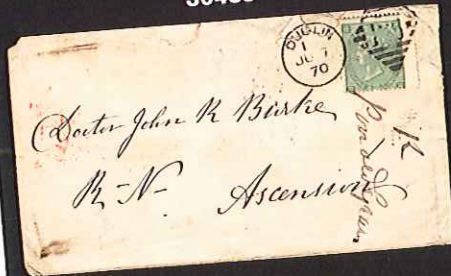 DUBLIN
1
JU 7
70
Doctor John R Burke
R-N-
Ascension